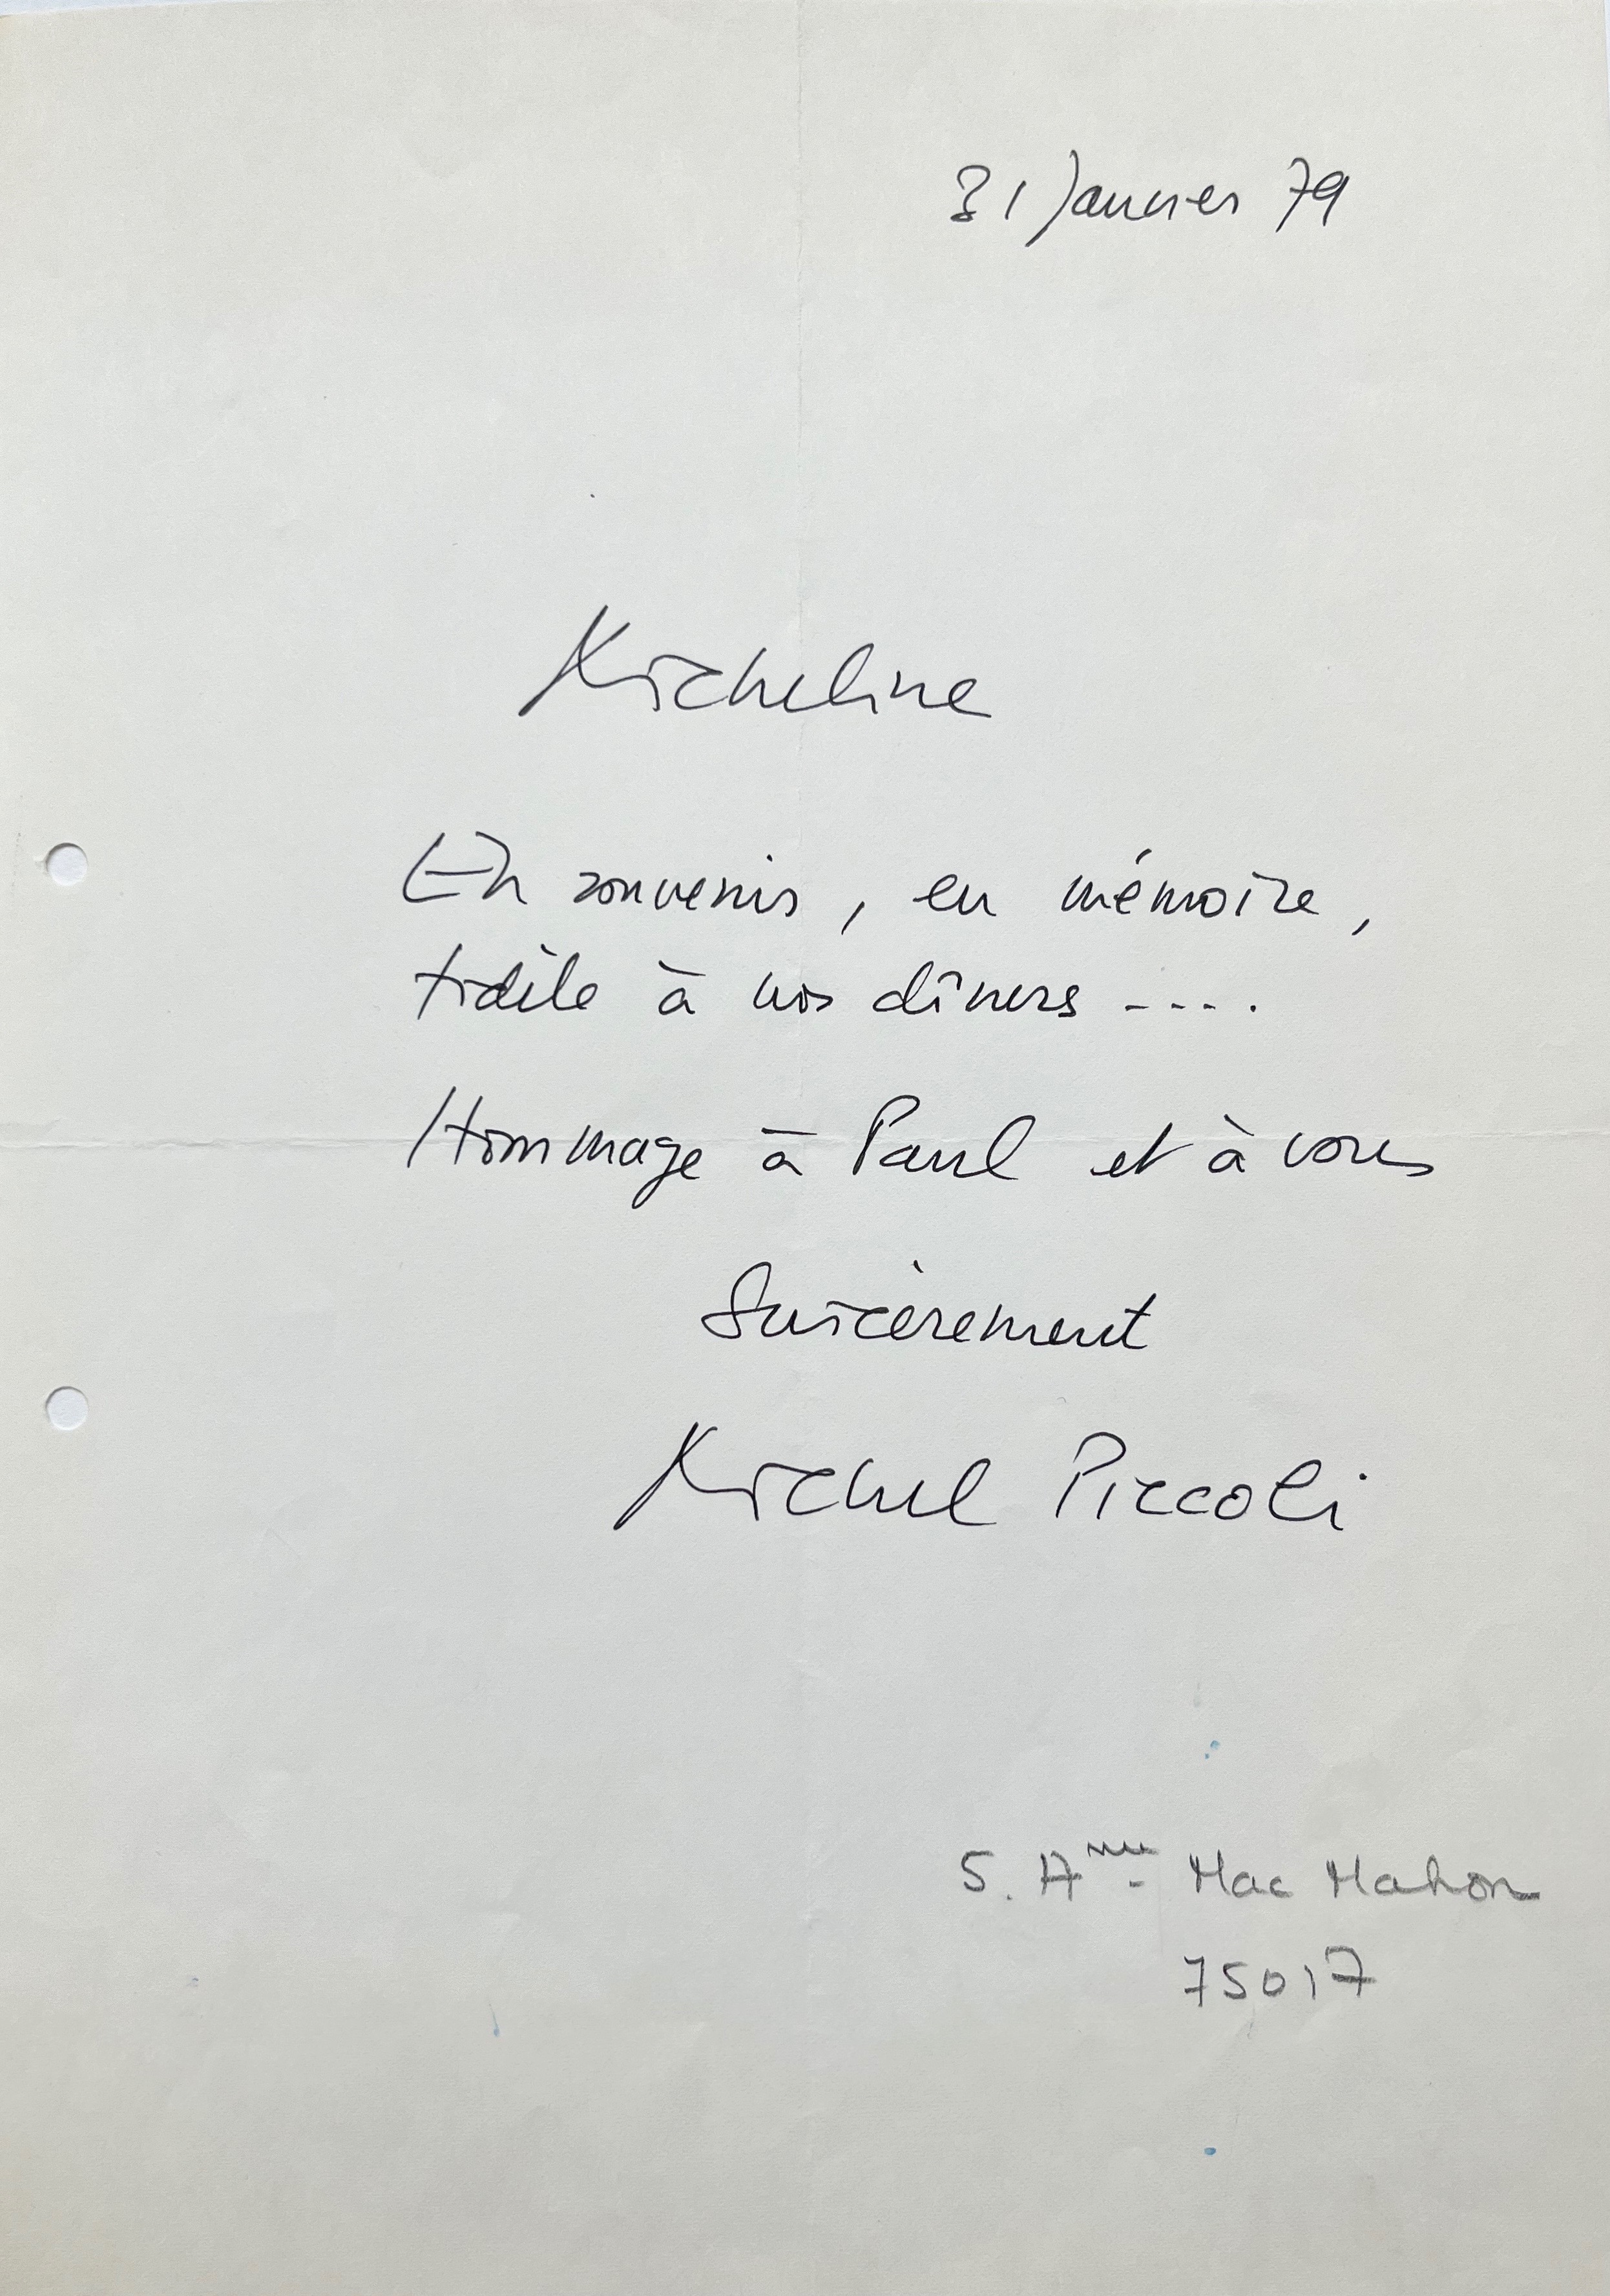 31 Janvier 79
Micheline
En souvenir, en mémoire,
fidèle à nos dîners ....
Hommage à Paul et à vous
Sincèrement
Michel Piccoli
5. Anue - Mac Mahon
75017